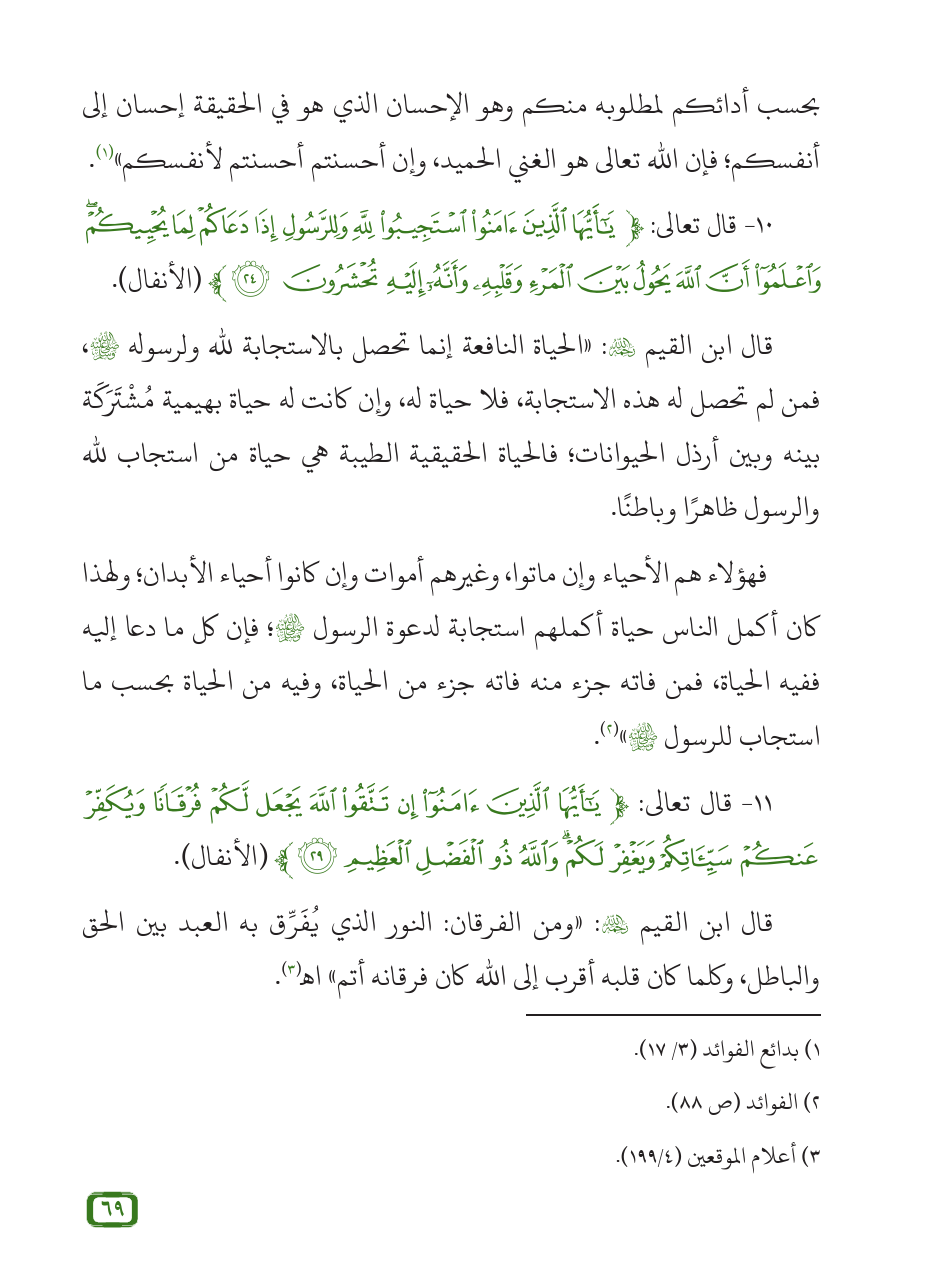 بحسب أدائكم لمطلوبه منكم وهو الإحسان الذي هو في الحقيقة إحسان إلى
أنفسكم؛ فإن الله تعالى هو الغني الحميد، وإن أحسنتم أحسنتم لأنفسكم»(١).
١٠- قال تعالى: ﴿يَٰٓأَيُّهَا ٱلَّذِينَ ءَامَنُوا۟ ٱسْتَجِيبُوا۟ لِلَّهِ وَلِلرَّسُولِ إِذَا دَعَاكُمْ لِمَا يُحْيِيكُمْ ۖ
وَٱعْلَمُوٓا۟ أَنَّ ٱللَّهَ يَحُولُ بَيْنَ ٱلْمَرْءِ وَقَلْبِهِۦ وَأَنَّهُۥٓ إِلَيْهِ تُحْشَرُونَ ٢٤﴾ (الأنفال).
قال ابن القيم رحمه الله: «الحياة النافعة إنما تحصل بالاستجابة لله ولرسوله ﷺ،
فمن لم تحصل له هذه الاستجابة، فلا حياة له، وإن كانت له حياة بهيمية مُشْتَرَكَة
بينه وبين أرذل الحيوانات؛ فالحياة الحقيقية الطيبة هي حياة من استجاب لله
والرسول ظاهرًا وباطنًا.
فهؤلاء هم الأحياء وإن ماتوا، وغيرهم أموات وإن كانوا أحياء الأبدان؛ ولهذا
كان أكمل الناس حياة أكملهم استجابة لدعوة الرسول ﷺ؛ فإن كل ما دعا إليه
ففيه الحياة، فمن فاته جزء منه فاته جزء من الحياة، وفيه من الحياة بحسب ما
استجاب للرسول ﷺ»(٢).
١١- قال تعالى: ﴿يَٰٓأَيُّهَا ٱلَّذِينَ ءَامَنُوٓا۟ إِن تَتَّقُوا۟ ٱللَّهَ يَجْعَل لَّكُمْ فُرْقَانًا وَيُكَفِّرْ
عَنكُمْ سَيِّـَٔاتِكُمْ وَيَغْفِرْ لَكُمْ ۗ وَٱللَّهُ ذُو ٱلْفَضْلِ ٱلْعَظِيمِ ٢٩﴾ (الأنفال).
قال ابن القيم رحمه الله: «ومن الفرقان: النور الذي يُفَرِّق به العبد بين الحق
والباطل، وكلما كان قلبه أقرب إلى الله كان فرقانه أتم» اهـ(٣).
١) بدائع الفوائد (٣/ ١٧).
٢) الفوائد (ص ٨٨).
٣) أعلام الموقعين (١٩٩/٤).
٦٩